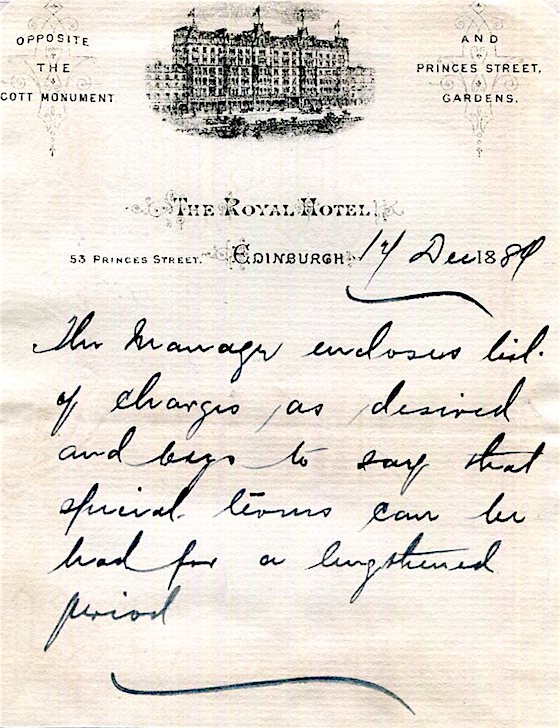 OPPOSITE
THE
COTT MONUMENT.
AND
PRINCES STREET,
GARDENS.
THE ROYAL HOTEL
53 PRINCES STREET. EDINBURGH 17 Dec 1889
The Manager encloses list
of charges, as desired
and begs to say that
special terms can be
had for a lengthened
period